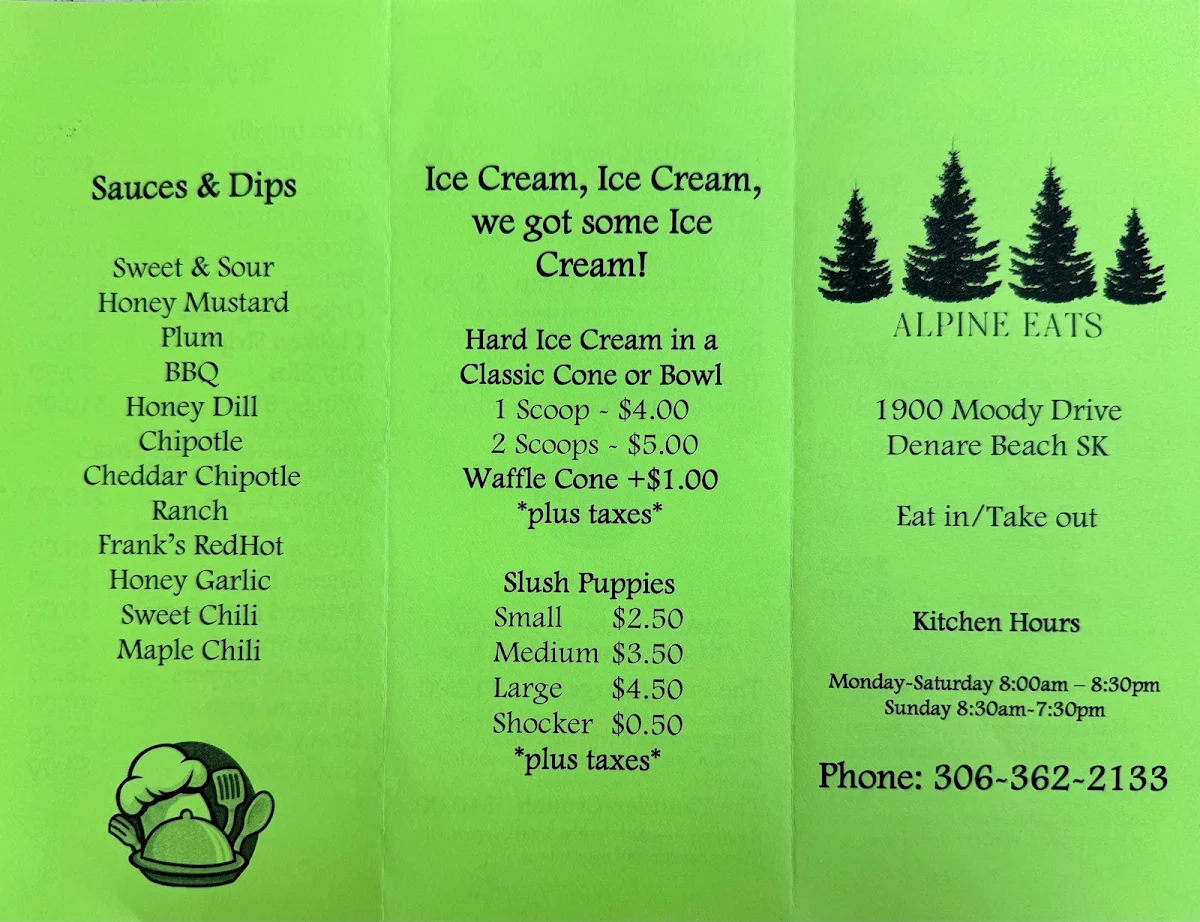 Sauces & Dips
Sweet & Sour
Honey Mustard
Plum
BBQ
Honey Dill
Chipotle
Cheddar Chipotle
Ranch
Frank's RedHot
Honey Garlic
Sweet Chili
Maple Chili
Ice Cream, Ice Cream,
we got some Ice
Cream!
Hard Ice Cream in a
Classic Cone or Bowl
1 Scoop ~ $4.00
2 Scoops ~ $5.00
Waffle Cone +$1.00
*plus taxes*
Slush Puppies
Small $2.50
Medium $3.50
Large $4.50
Shocker $0.50
*plus taxes*
ALPINE EATS
1900 Moody Drive
Denare Beach SK
Eat in/Take out
Kitchen Hours
Monday-Saturday 8:00am – 8:30pm
Sunday 8:30am-7:30pm
Phone: 306-362-2133